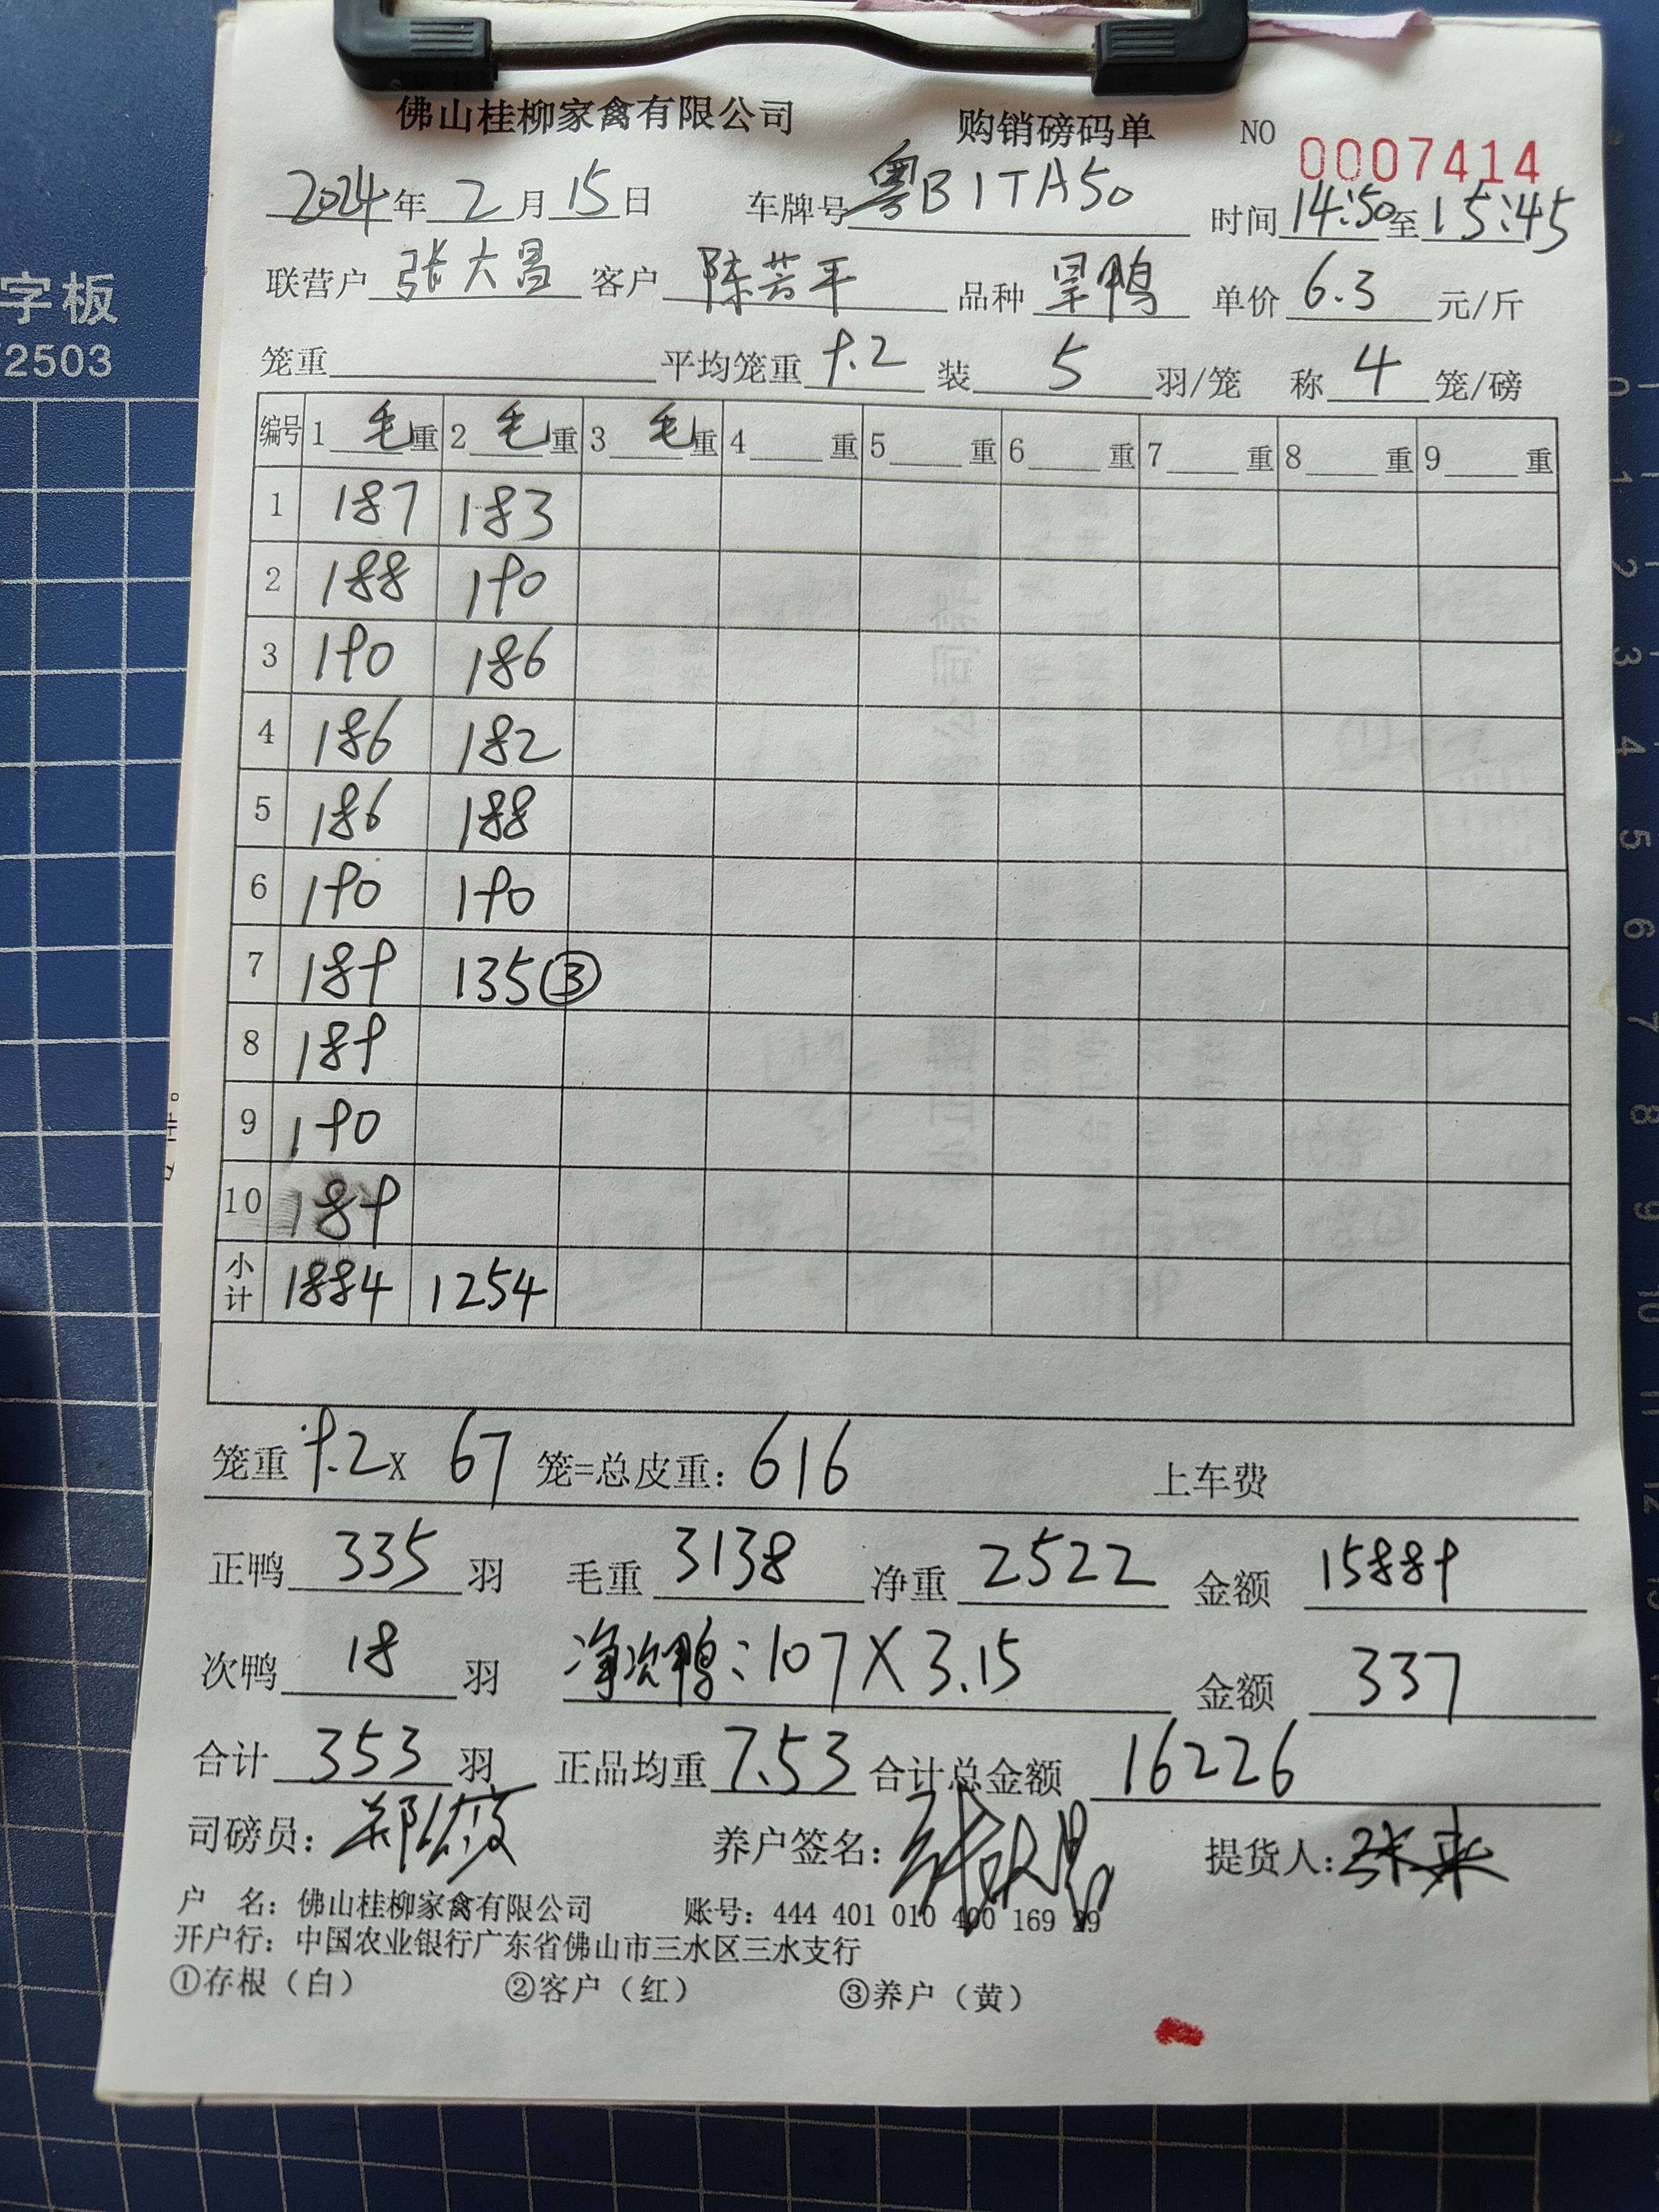 佛山桂柳家禽有限公司 购销磅码单 NO 0007414
2024年2月15日 车牌号粤B1TA50 时间14:50至15:45
联营户张大昌 客户陈芳平 品种旱鸭 单价6.3元/斤
笼重 平均笼重9.2 装5羽/笼 称4笼/磅
编号 1毛重 2毛重 3毛重 4重 5重 6重 7重 8重 9重
1 187 183
2 188 190
3 190 186
4 186 182
5 186 188
6 190 190
7 189 135③
8 189
9 190
10 189
小计 1884 1254
笼重9.2X67笼=总皮重:616 上车费
正鸭335羽 毛重3138 净重2522 金额15889
次鸭18羽 净次鸭:107X3.15 金额337
合计353羽 正品均重7.53 合计总金额16226
司磅员: 养户签名:张大昌 提货人:
户 名: 佛山桂柳家禽有限公司 账号: 444 401 010 400 169 29
开户行: 中国农业银行广东省佛山市三水区三水支行
①存根（白） ②客户（红） ③养户（黄）
字板
2503
0
1
2
3
4
5
6
7
8
9
10
11
12
13